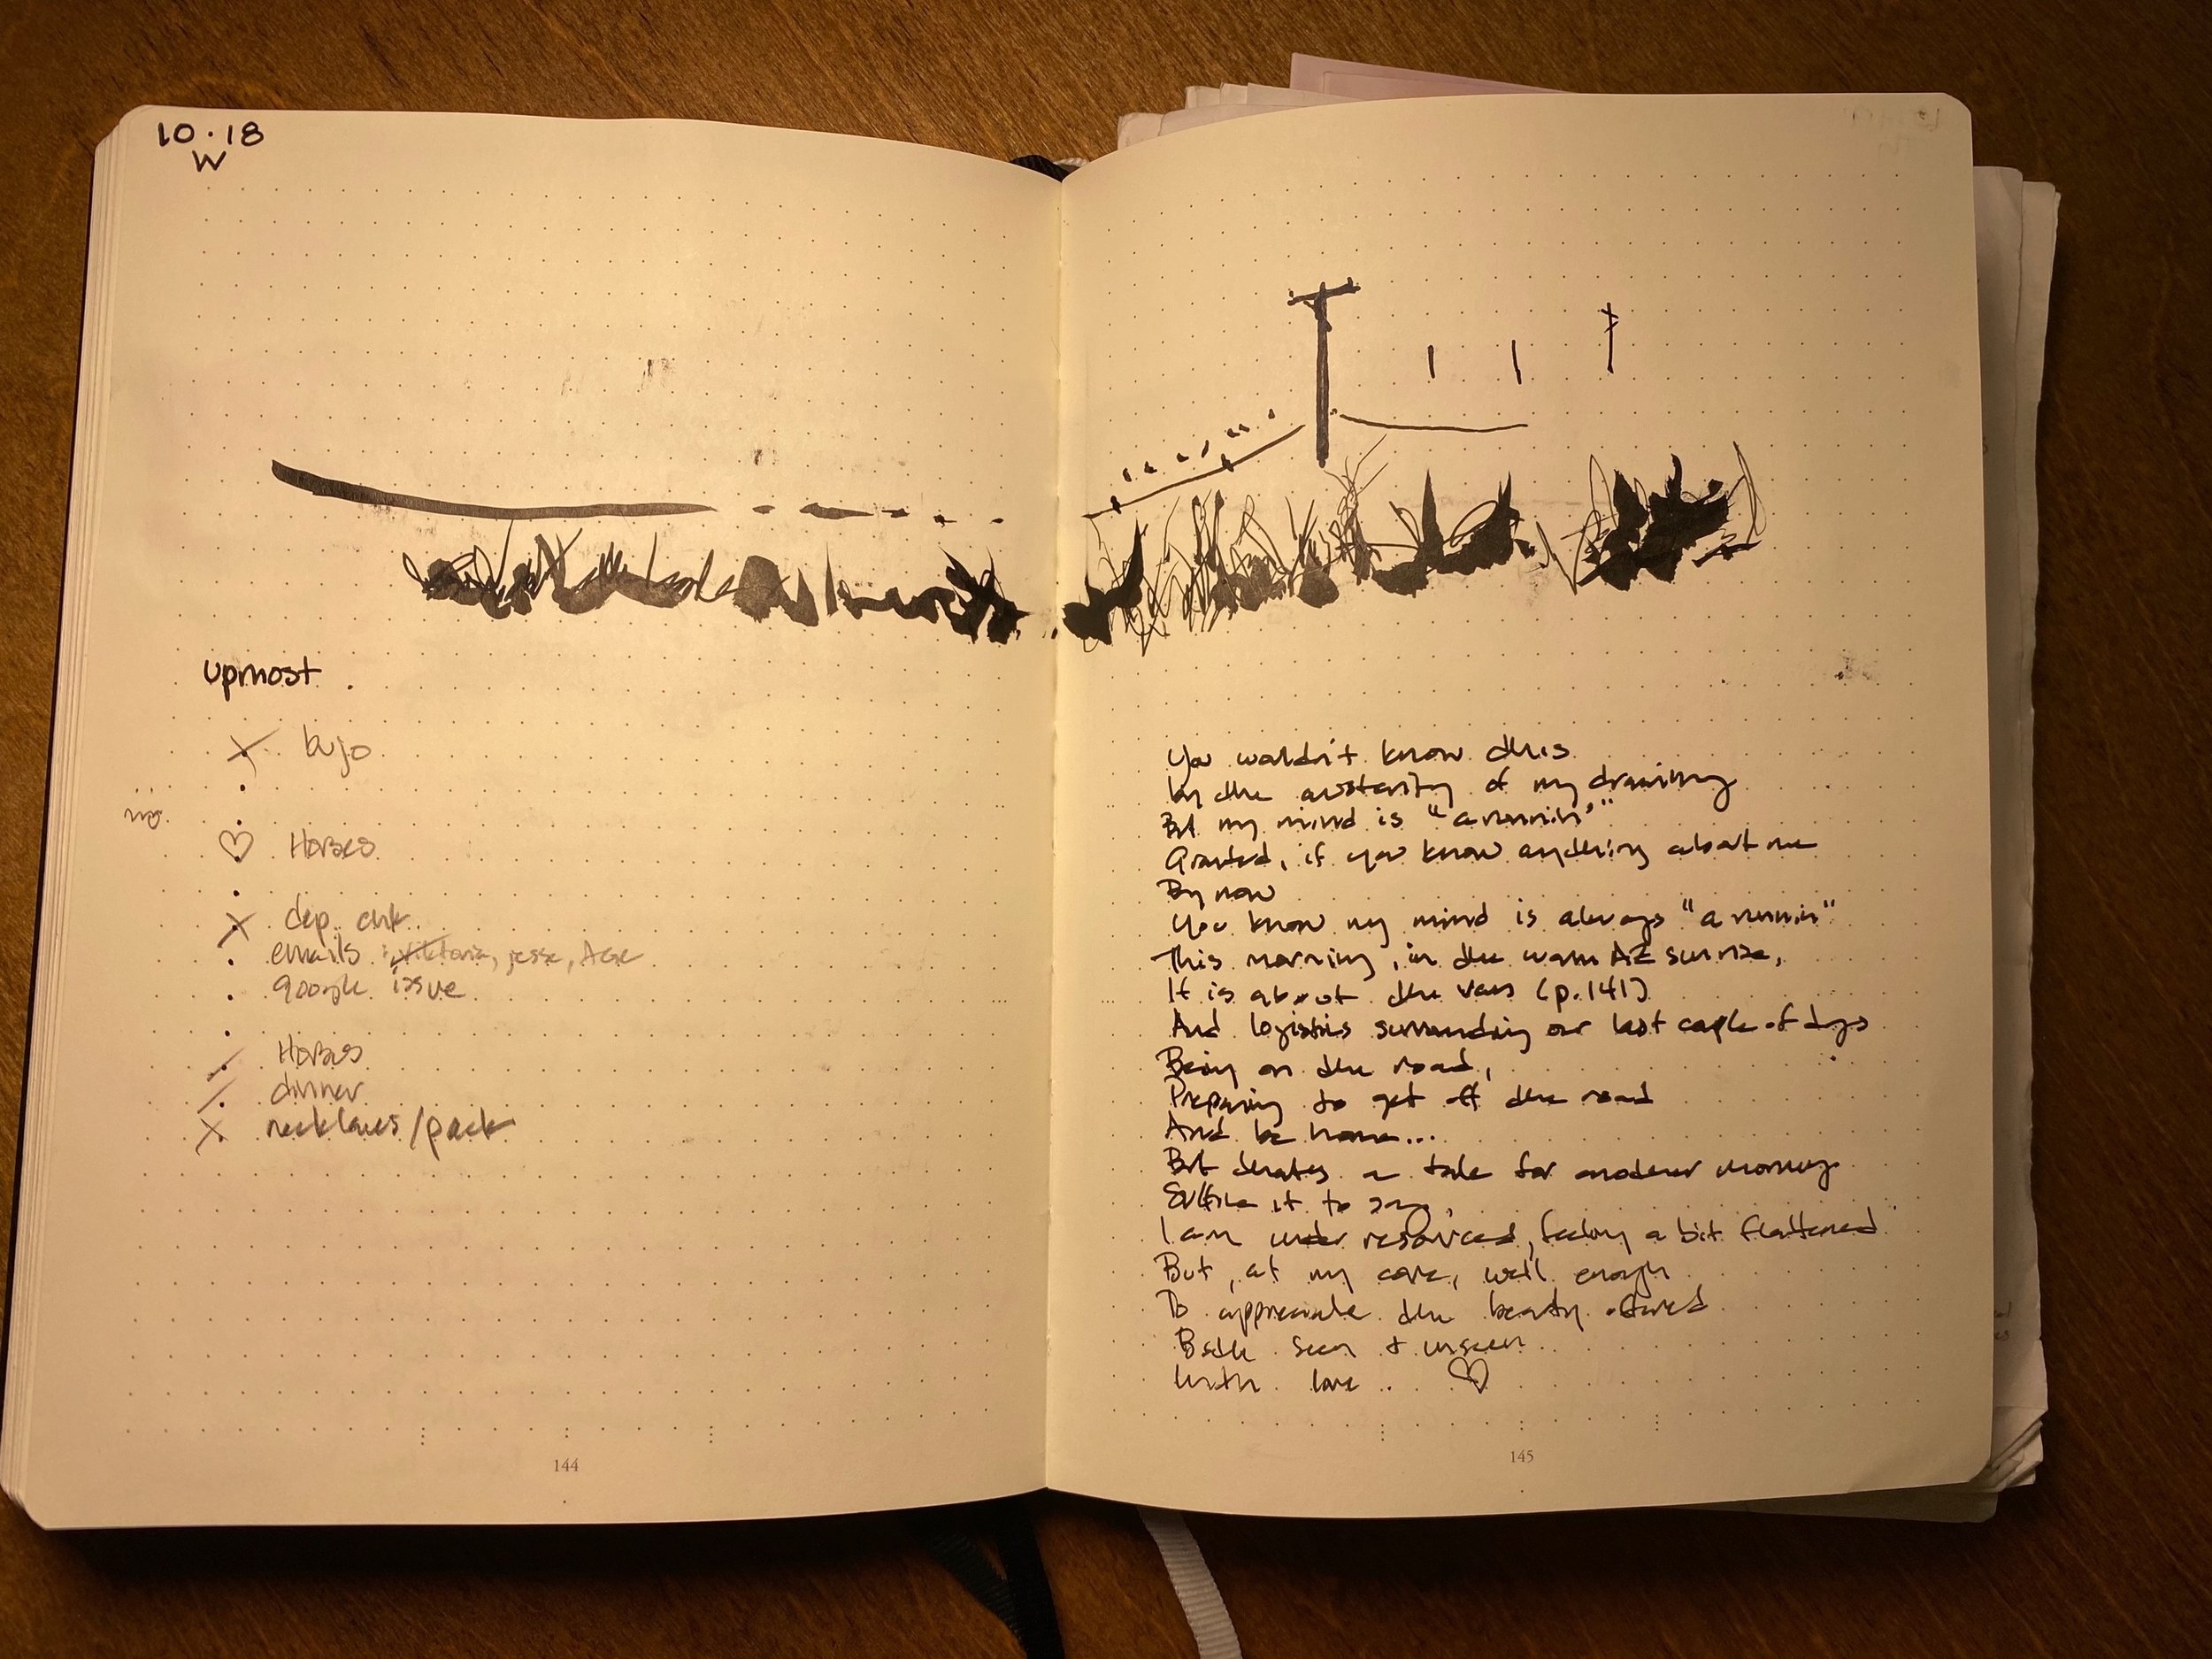 10.18
W
upmost
bujo
Horses
dep. chk
emails: Viktoria, jesse,
google issue
Horses
dinner
necklaces/pack
144
You wouldn't know this
by the austerity of my drawing
But my mind is "a runnin'"
Granted, if you know anything about me
By now
You know my mind is always "a runnin"
This morning, in the warm AZ sunrise,
It is about the van (p.141)
And logistics surrounding our last couple of days
Being on the road,
Preparing to get off the road
And be home...
But that's a tale for another morning
Suffice it to say,
I am under resourced, feeling a bit flattened
But, at my core, well enough
To appreciate the beauty offered
Both seen + unseen
With love ♡
145